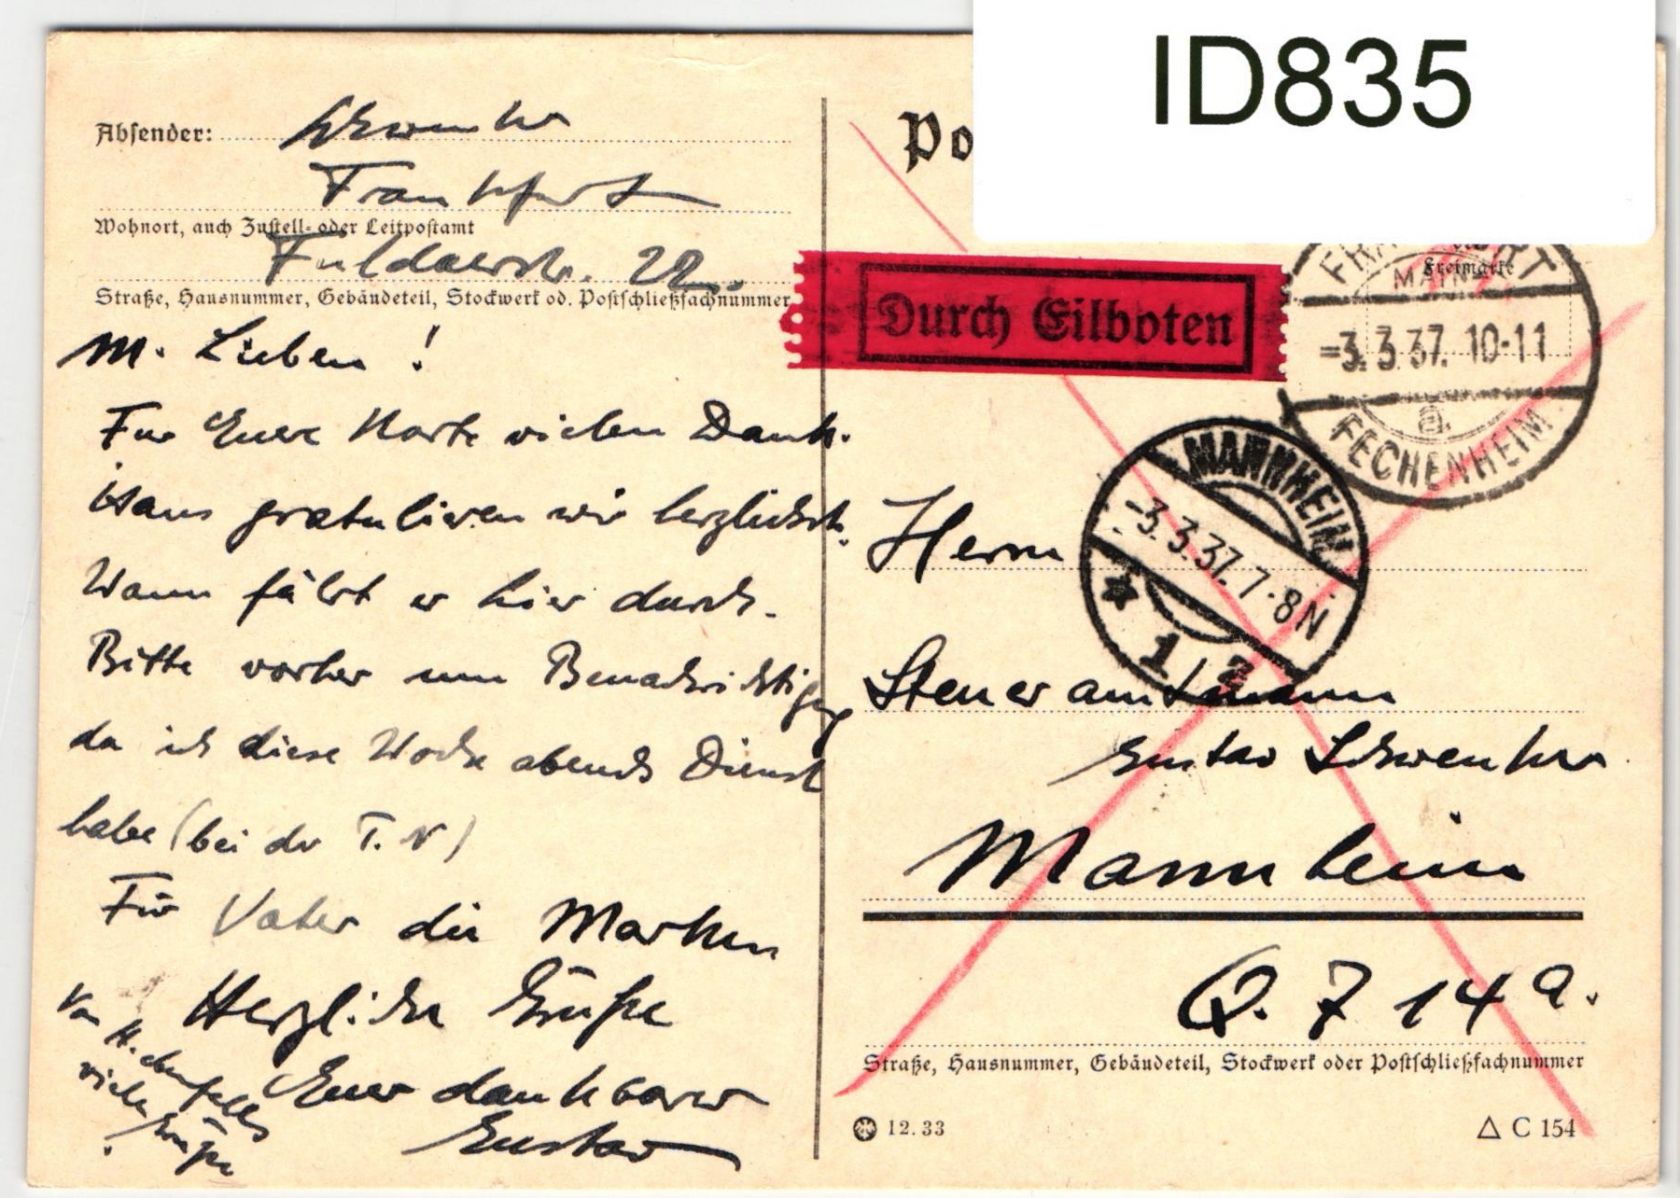 ID835
Po
Absender:
Frankfurt
Wohnort, auch Zustell- oder Leitpostamt
Fuldaerstr. 22.
Straße, Hausnummer, Gebäudeteil, Stockwerk od. Postschließfachnummer
M. Lieben!
Für Euere Karte vielen Dank.
Hans gratulieren wir herzlichst.
Wann fährt er hier durch.
Bitte vorher um Benachrichtigung
da ich diese Woche abends Dienst
habe (bei der T.N)
Für Vater die Marken
Herzliche Grüße
Euer dankbarer
Gustav
Von H. ebenfalls
viele Grüße
Durch Eilboten
Freimarke
FRANKFURT
MAIN
-3.3.37.10-11
a
FECHENHEIM
MANNHEIM
-3.3.37.7-8N
* 1/2
Herrn
Steueramtmann
Gustav
Mannheim
Q. 7 14a.
Straße, Hausnummer, Gebäudeteil, Stockwerk oder Postschließfachnummer
12.33
△ C 154